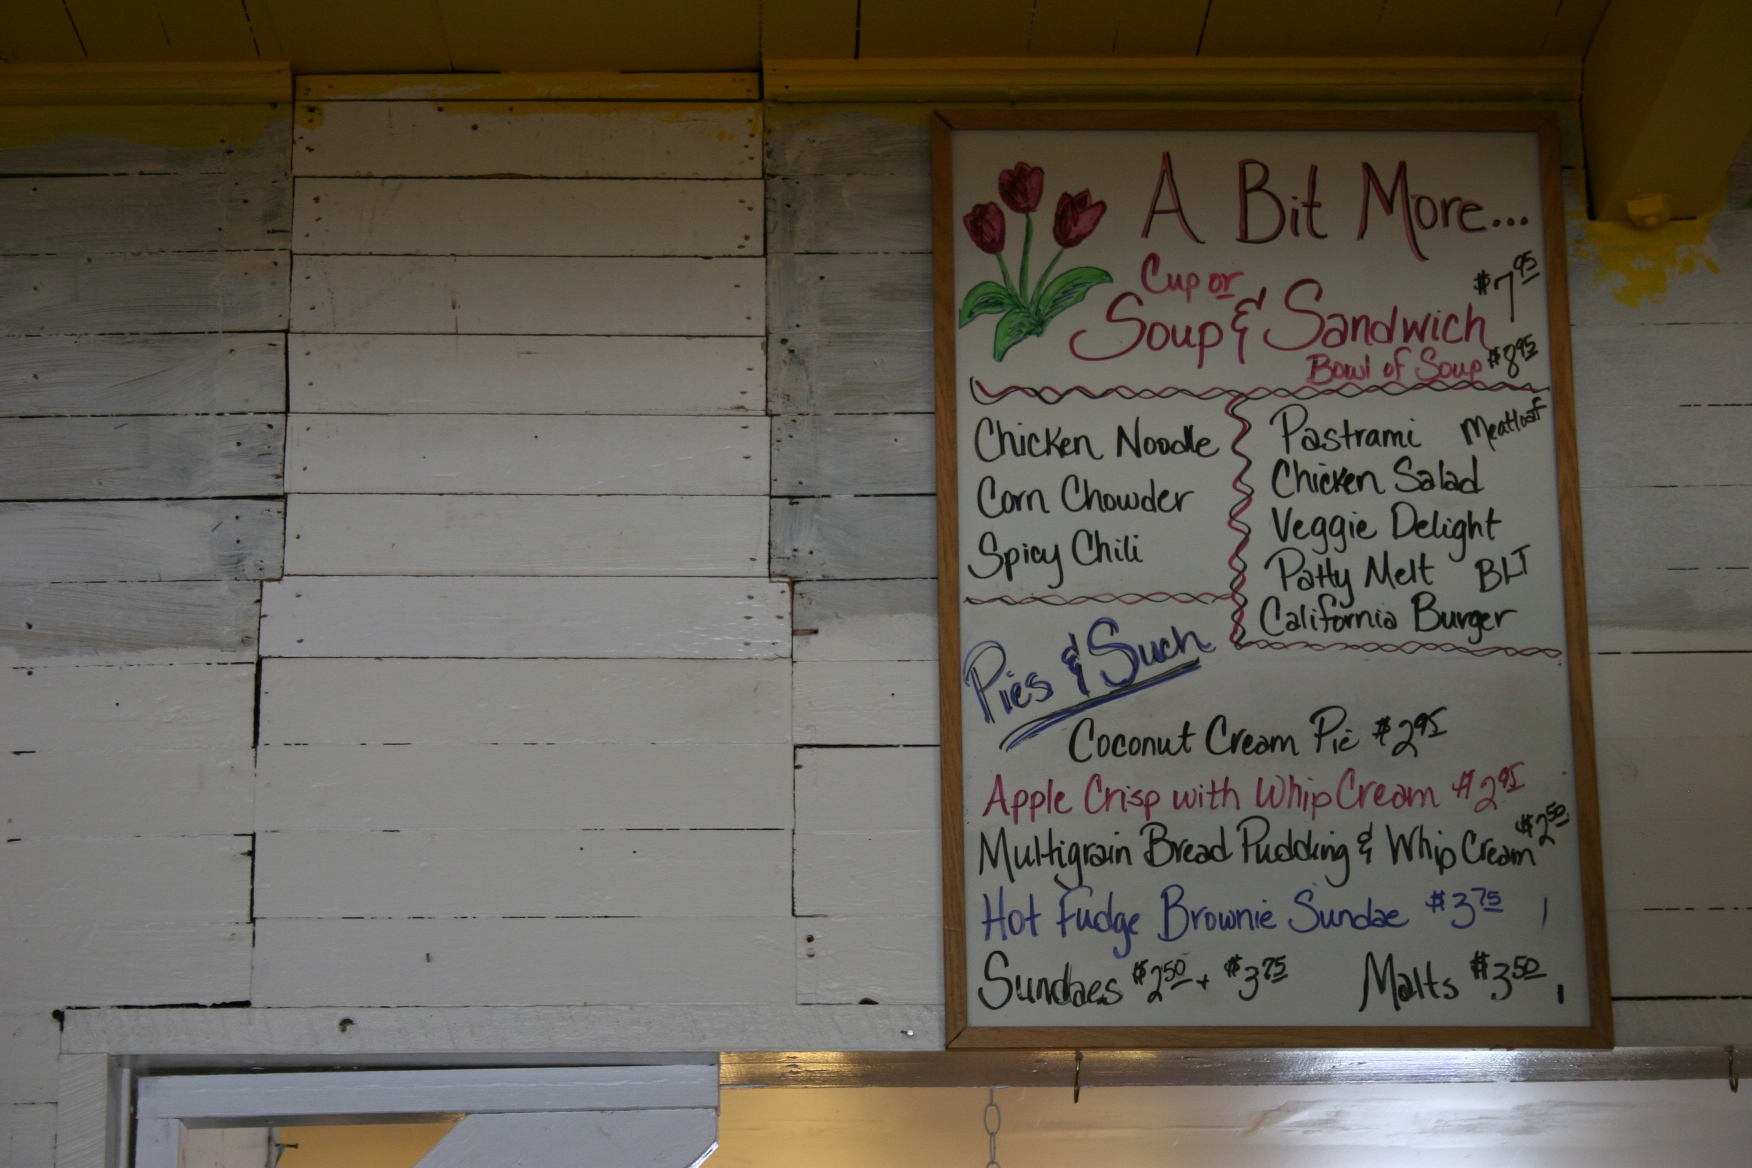 A Bit More...
Cup or $7.95
Soup & Sandwich
Bowl of Soup $8.95
Chicken Noodle
Corn Chowder
Spicy Chili
Pastrami Meatloaf
Chicken Salad
Veggie Delight
Patty Melt BLT
California Burger
Pies & Such
Coconut Cream Pie $2.95
Apple Crisp with Whip Cream $2.95
Multigrain Bread Pudding & Whip Cream $2.50
Hot Fudge Brownie Sundae $3.75
Sundaes $2.50 + $3.75 Malts $3.50